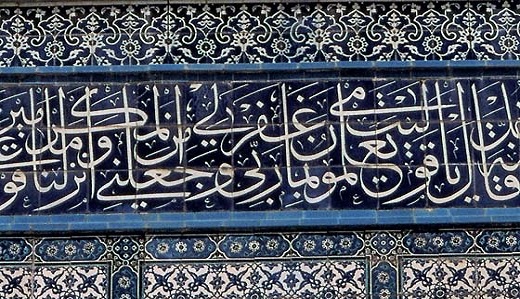 قال يا ليت قومي يعلمون بما غفر لي ربي وجعلني من المكرمين وما أنزلنا